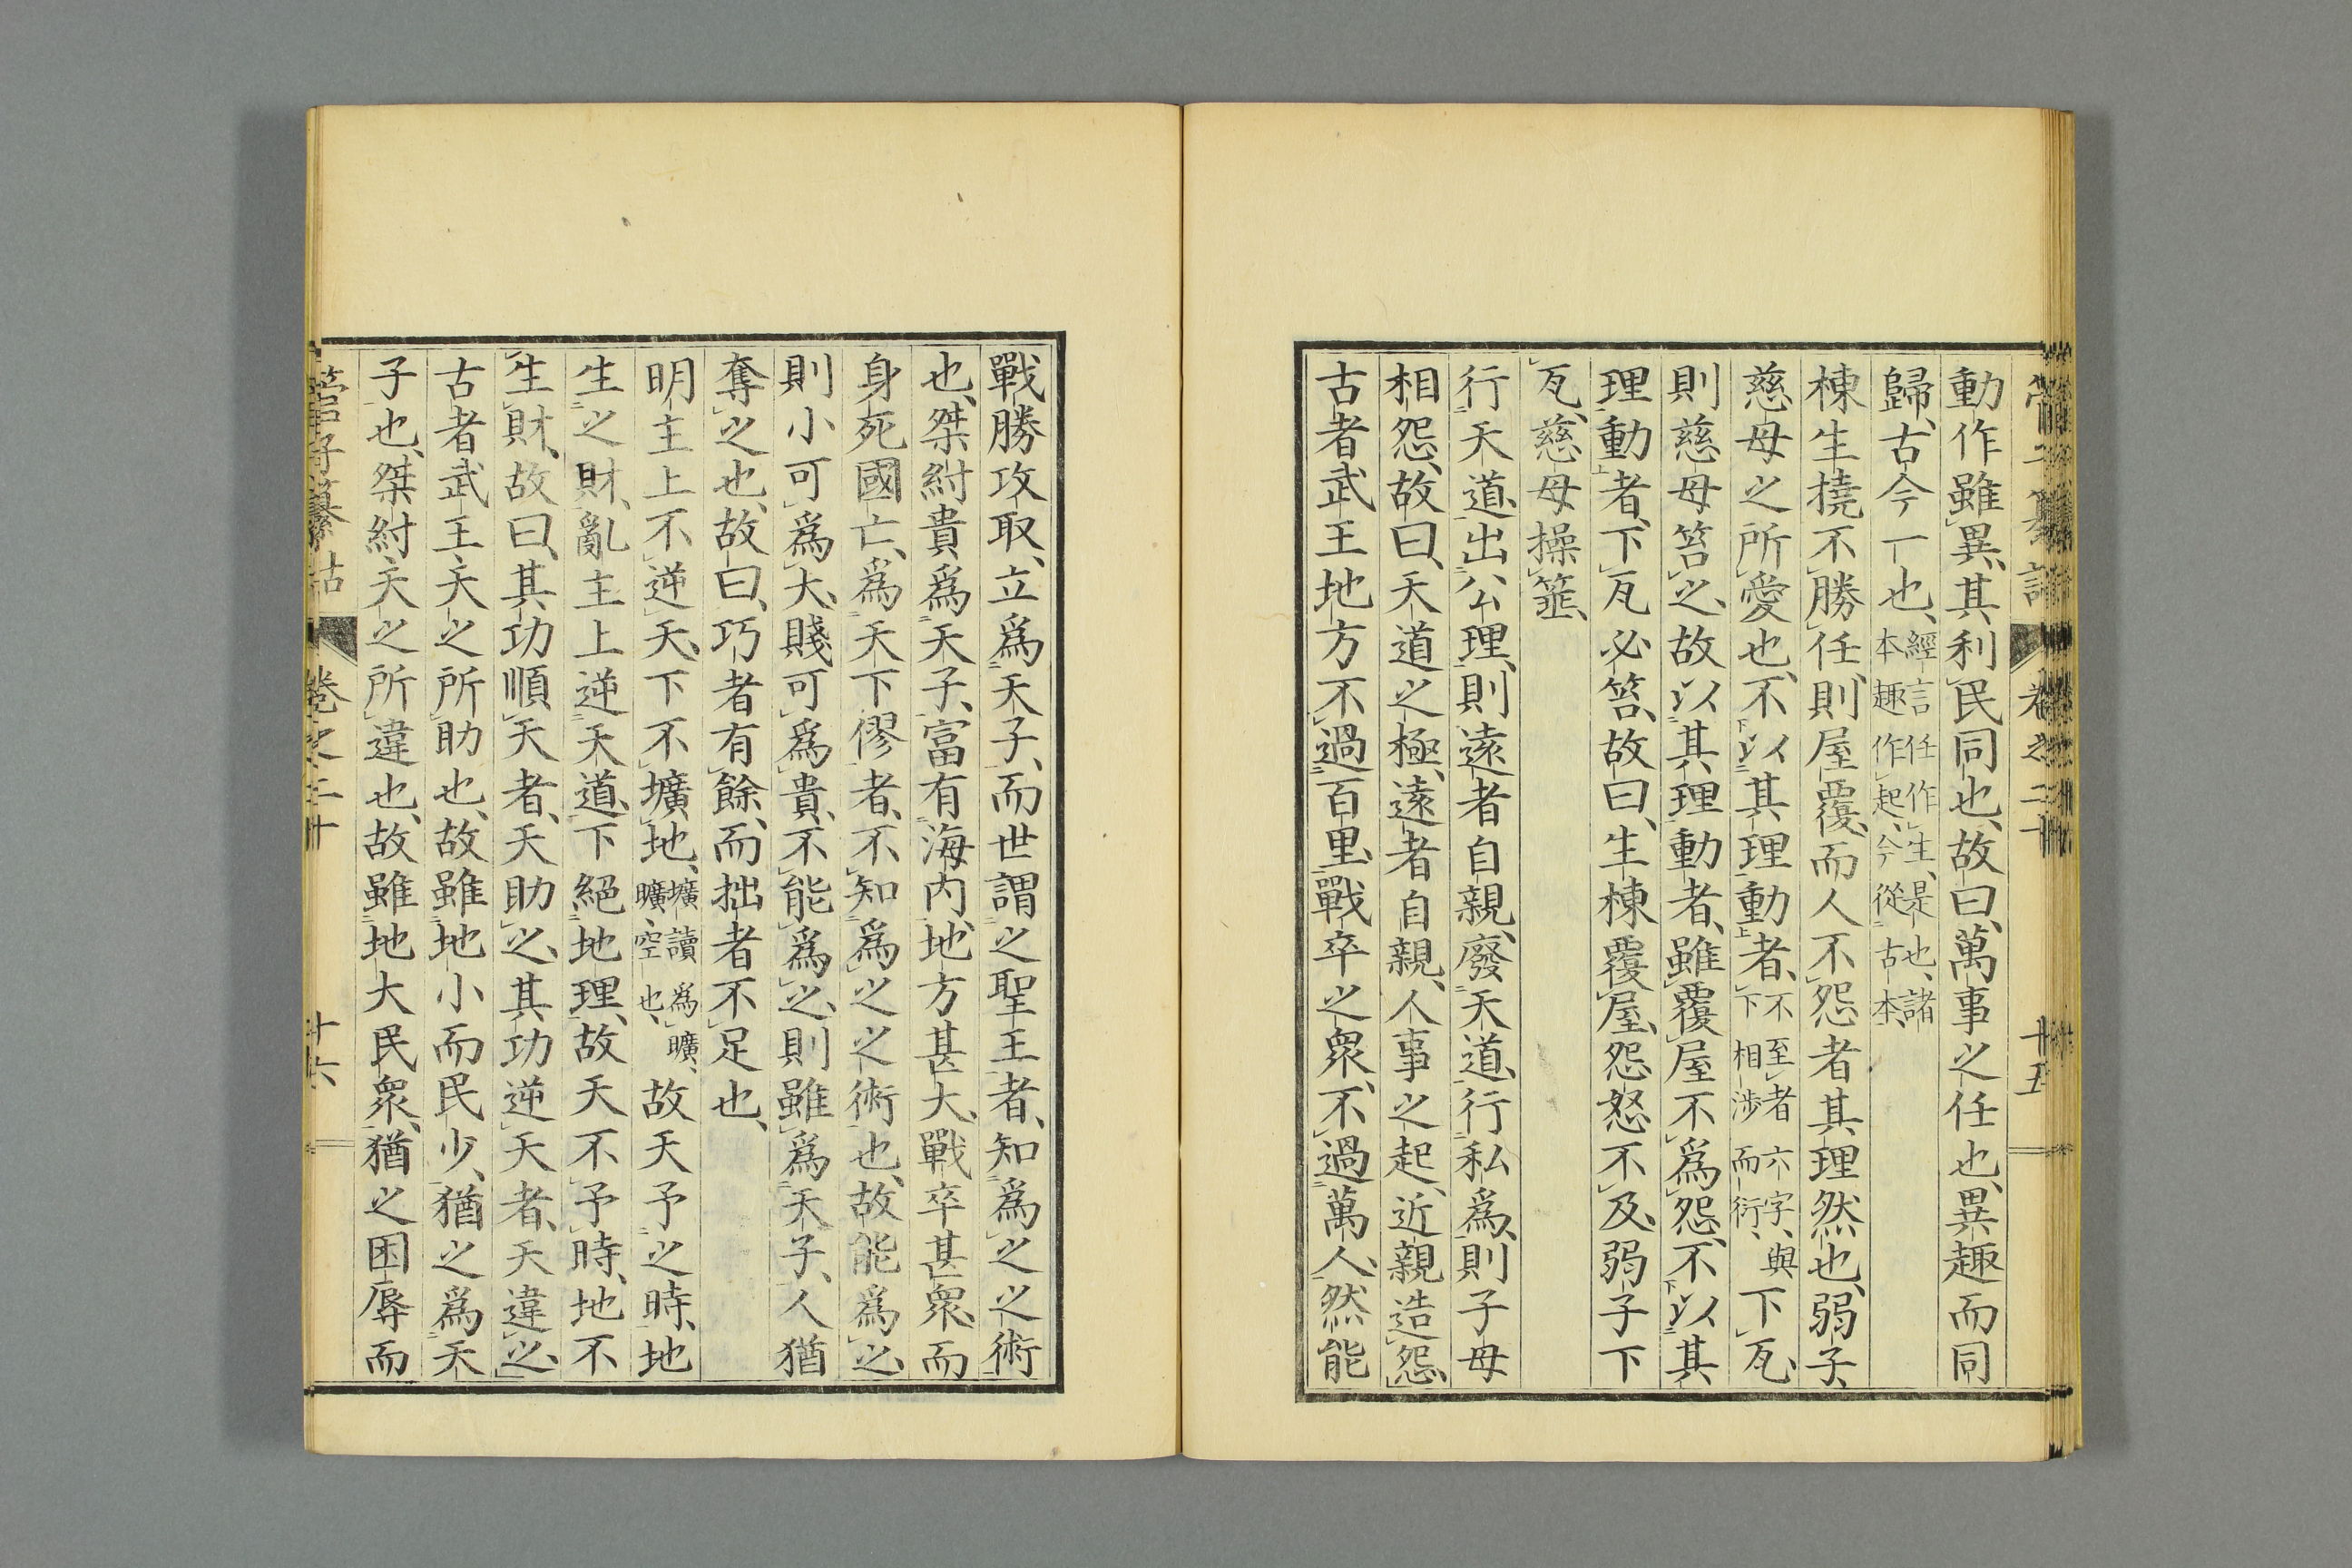 動作雖異、其利民同也、故曰、萬事之任也、異趣而同
歸、古今一也、經言任作生、是也、諸本趣作起、今從古本、
棟生撓不勝任、則屋覆、而人不怨者、其理然也、弱子、
慈母之所愛也、不以其理動者、不至者六字、與下相涉而衍、下瓦、
則慈母笞之、故以其理動者、雖覆屋不爲怨、不以其
理動者、下瓦必笞、故曰、生棟覆屋、怨怒不及、弱子下
瓦、慈母操箠、
行天道、出公理、則遠者自親、廢天道、行私爲、則子母
相怨、故曰、天道之極、遠者自親、人事之起、近親造怨、
古者武王地方不過百里、戰卒之衆、不過萬人、然能
戰勝攻取、立爲天子、而世謂之聖王者、知爲之之術
也、桀紂貴爲天子、富有海內、地方甚大、戰卒甚衆、而
身死國亡、爲天下僇者、不知爲之之術也、故能爲之、
則小可爲大、賤可爲貴、不能爲之、則雖爲天子、人猶
奪之也、故曰、巧者有餘、而拙者不足也、
明主上不逆天、下不壙地、壙讀爲曠、曠、空也、故天予之時、地
生之財、亂主上逆天道、下絕地理、故天不予時、地不
生財、故曰、其功順天者、天助之、其功逆天者、天違之、
古者武王、天之所助也、故雖地小而民少、猶之爲天
子也、桀紂、天之所違也、故雖地大民衆、猶之困辱而
管子纂詁　卷之二十　十六